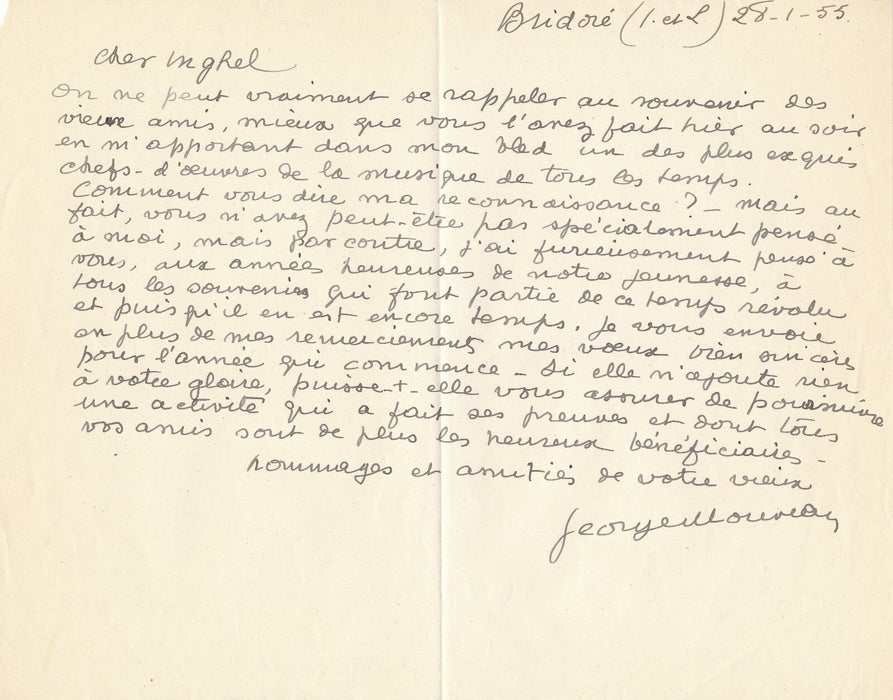 Bridoré (I. et L) 28-1-55.
Cher Inghel
On ne peut vraiment se rappeler au souvenir des
vieux amis, mieux que vous l'avez fait hier au soir
en m'apportant dans mon bled un des plus exquis
chefs-d'œuvres de la musique de tous les temps.
Comment vous dire ma reconnaissance ? - mais au
fait, vous n'avez peut-être pas spécialement pensé
à moi, mais par contre, j'ai furieusement pensé à
vous, aux années heureuses de notre jeunesse, à
tous les souvenirs qui font partie de ce temps révolu
et puisqu'il en est encore temps. je vous envoie
en plus de mes remerciements mes vœux bien sincères
pour l'année qui commence - Si elle n'ajoute rien
à votre gloire, puisse-t-elle vous assurer de poursuivre
une activité qui a fait ses preuves et dont tous
vos amis sont de plus les heureux bénéficiaires -
hommages et amitiés de votre vieux
George Mouveau